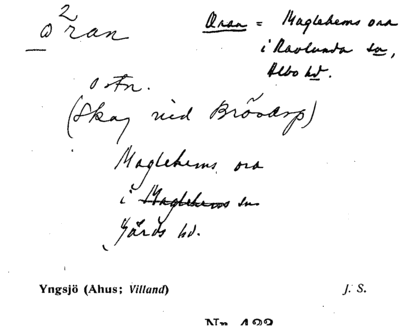 o²ran
Oran = Maglehems ora
i Ravlunda sn,
Albo hd.
o str.
(Skog vid Brösarp)
Maglehems ora
i Maglehems sn
Gärds hd.
Yngsjö (Ahus; Villand) J. S.
Nr. 423